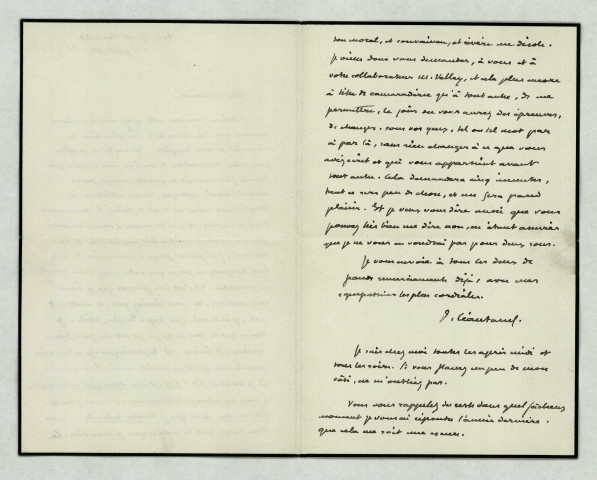 ton moral, et convaincu, et sévère me désole.
Je viens donc vous demander, à vous et à
votre collaborateur M. Vallay, et cela plus encore
à titre de camaraderie qu'à tout autre, de me
permettre, le jour où vous aurez des épreuves,
de changer, sous vos yeux, tel ou tel mot par
ci par là, sans rien changer à ce que vous
avez écrit et qui vous appartient avant
tout autre. Cela demandera cinq minutes,
tout ce sera peu de chose, et me fera grand
plaisir. Et je veux vous dire aussi que vous
pouvez très bien me dire non, en étant assurés
que je ne vous en voudrai pas pour deux sous.
Je vous envoie à tous les deux de
grands remerciements déjà, avec mes
sympathies les plus cordiales.
P. Léautaud.
Je suis chez moi toutes les après midi et
tous les soirs. Si vous flanez un peu de mon
côté, ne m'oubliez pas.
Vous vous rappelez du reste dans quel fâcheux
moment je vous ai répondu l'année dernière.
que cela me soit une excuse.